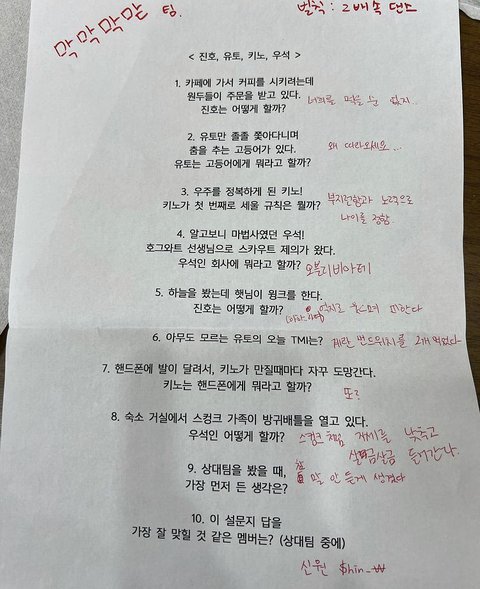 막막막막 팀.
벌칙 : 2배속 댄스
< 진호, 유토, 키노, 우석 >
1. 카페에 가서 커피를 시키려는데
원두들이 주문을 받고 있다.
진호는 어떻게 할까? 너희를 먹을 순 없지..
2. 유토만 졸졸 쫓아다니며
춤을 추는 고등어가 있다. 왜 따라오세요...
유토는 고등어에게 뭐라고 할까?
3. 우주를 정복하게 된 키노!
키노가 첫 번째로 세울 규칙은 뭘까? 부지런함과 노력으로
나이를 정함
4. 알고보니 마법사였던 우석!
호그와트 선생님으로 스카우트 제의가 왔다.
우석인 회사에 뭐라고 할까? 오블리비아테
5. 하늘을 봤는데 햇님이 윙크를 한다.
진호는 어떻게 할까? 억지로 웃으며 피한다
6. 아무도 모르는 유토의 오늘 TMI는? 계란 샌드위치를 2개 먹었다
7. 핸드폰에 발이 달려서, 키노가 만질때마다 자꾸 도망간다.
키노는 핸드폰에게 뭐라고 할까?
또?
8. 숙소 거실에서 스컹크 가족이 방귀배틀을 열고 있다.
우석인 어떻게 할까? 스컹크처럼 자세를 낮추고
살금살금 들어간다.
9. 상대팀을 봤을 때,
가장 먼저 든 생각은? 참 말 안 듣게 생겼다
10. 이 설문지 답을
가장 잘 맞힐 것 같은 멤버는? (상대팀 중에)
신원 $hin_₩